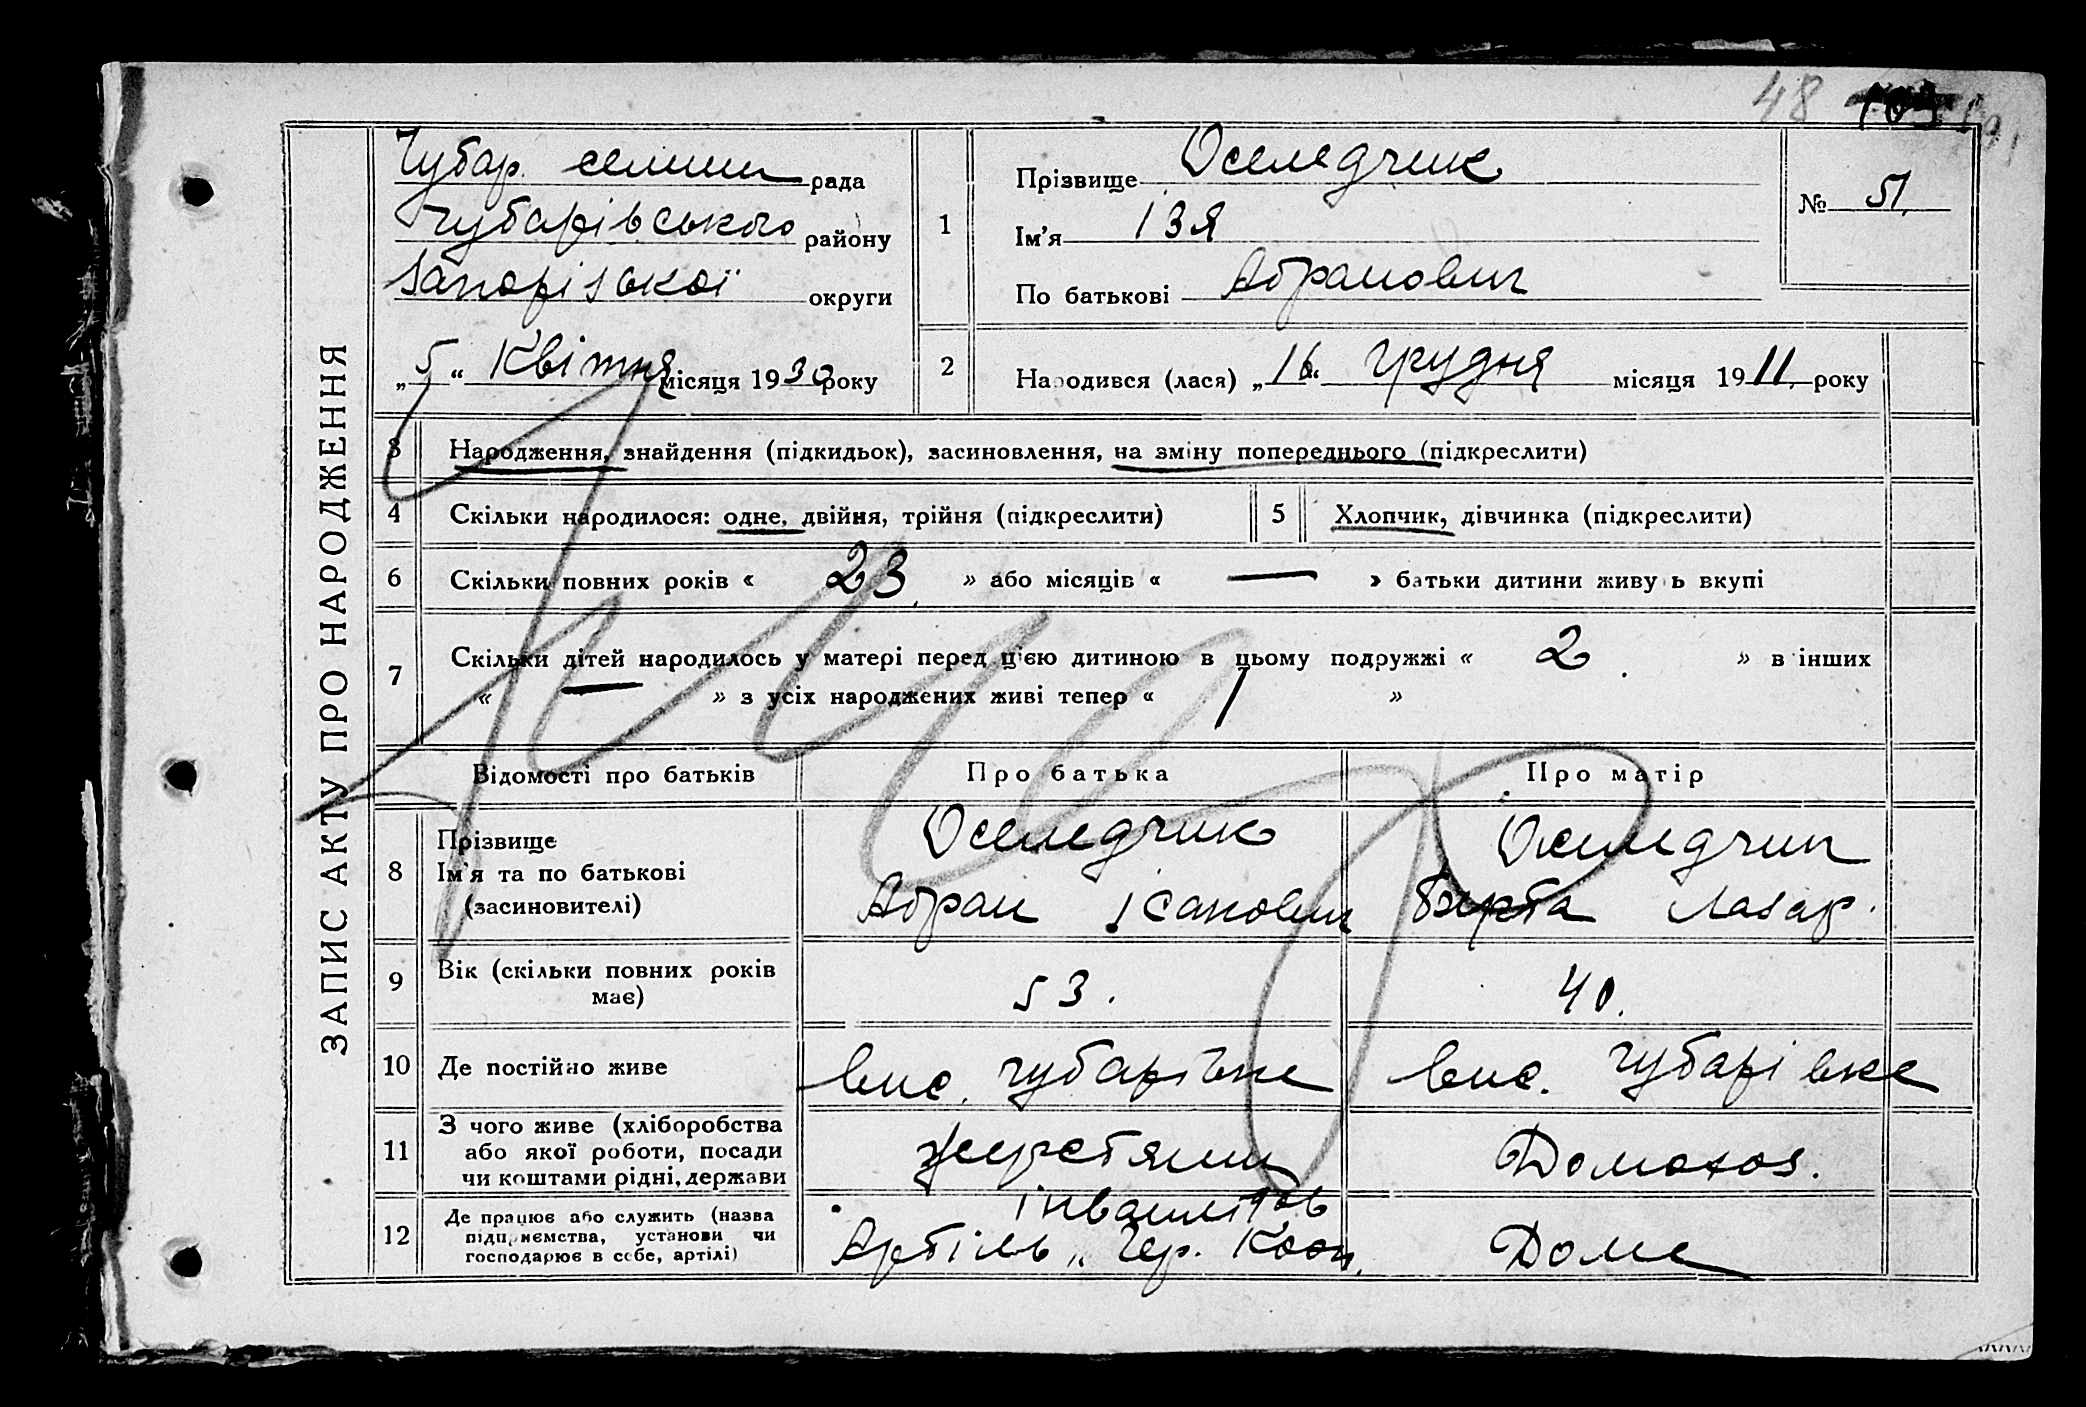 48
ЗАПИС АКТУ ПРО НАРОДЖЕННЯ
Чубар. селищн рада
Чубарівського району
Запорізької округи
„5“ Квітня місяця 1930 року
1
Прізвище Оселедчик
Ім'я Ізя
По батькові Абрамович
№ 51.
2
Народився (лася) „16“ Грудня місяця 1911 року
3 Народження, знайдення (підкидьок), засиновлення, на зміну попереднього (підкреслити)
4 Скільки народилося: одне, двійня, трійня (підкреслити)
5 Хлопчик, дівчинка (підкреслити)
6 Скільки повних років « 23 » або місяців « — » батьки дитини живуть вкупі
7 Скільки дітей народилось у матері перед цією дитиною в цьому подружжі « 2 » в інших
« — » з усіх народжених живі тепер « 1 »
Відомості про батьків Про батька Про матір
8 Прізвище
Ім'я та по батькові
(засиновителі)
Оселедчик
Абрам Ісакович
Оселедчик
Берта Лазар.
9 Вік (скільки повних років
має)
53.
40.
10 Де постійно живе
вис. Чубарівке
вис. Чубарівке
11 З чого живе (хліборобства
або якої роботи, посади
чи коштами рідні, держави
Домохоз.
12 Де працює або служить (назва
підприємства, установи чи
господарює в себе, артілі)
інвалидов
Артіль „Чер. Кооп.
Доме